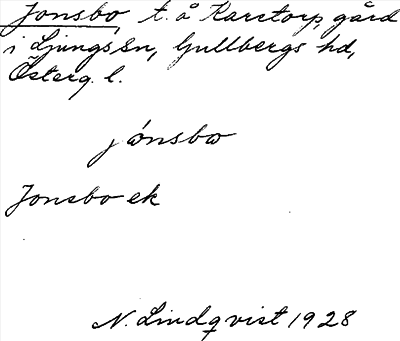 Jonsbo, t. å Karstorp, gård
i Ljungs sn, Gullbergs hd,
Österg. l.
jónsbω
Jonsbo ek
N. Lindqvist 1928